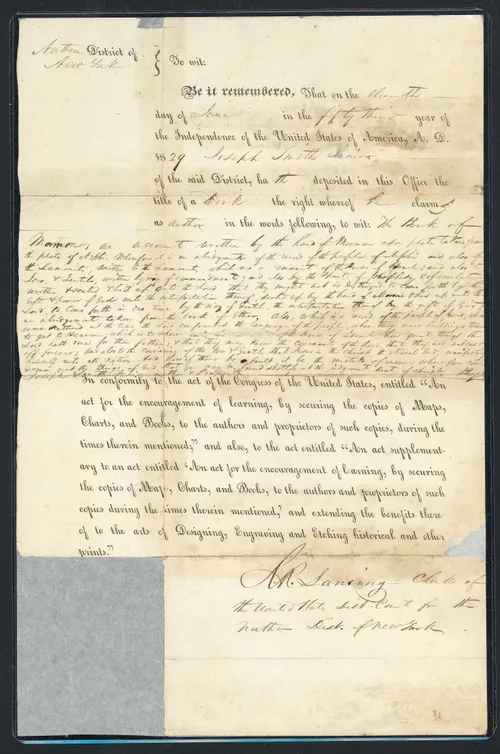 Northern District of
New York
To wit:
Be it remembered, That on the eleventh
day of June in the fifty third year of
the Independence of the United States of America, A. D.
1829 Joseph Smith Junior
of the said District, ha th deposited in this Office the
title of a Book the right whereof he claims
as author in the words following, to wit: The Book of
Mormon; an account written by the hand of Mormon upon plates taken from
the plates of Nephi Wherefore it is an abridgment of the record of the people of Nephi and also of
the Lamanites, written to the Lamanites, which are a remnant of the House of Israel and also to
Jew & Gentile, written by way of commandment, and also by the Spirit of Prophesy & of revelation
written & sealed & hid up unto the Lord that they might not be destroyed to come forth by the
gift & power of God unto the interpretation thereof sealed up by the hand of Moroni & hid up unto the
Lord to come forth in due time by the way of Gentile the interpretation thereof by the gift of God
an abridgment taken from the Book of Ether. Also, which is a record of the people of Jared, who
were scattered at the time the Lord confounded the language of the people when they were building a tower
to get to Heaven
Lord hath done for their fathers, & that they may know the covenants of the Lord that they are not cast
off forever, and also to the convincing of the Jew & Gentile that Jesus is the Christ the eternal God manifesting
In conformity to the act of the Congress of the United States, entitled "An
act for the encouragement of learning, by securing the copies of Maps,
Charts, and Books, to the authors and proprietors of such copies, during the
times therein mentioned;" and also, to the act entitled "An act supplement-
ary to an act entitled 'An act for the encouragement of learning, by securing
the copies of Maps, Charts, and Books, to the authors and proprietors of such
copies during the times therein mentioned,' and extending the benefits there
of to the arts of Designing, Engraving and Etching historical and other
prints."
R. R. Lansing Clerk of
the United States Dist. Court for the
Northern Dist. of New York.